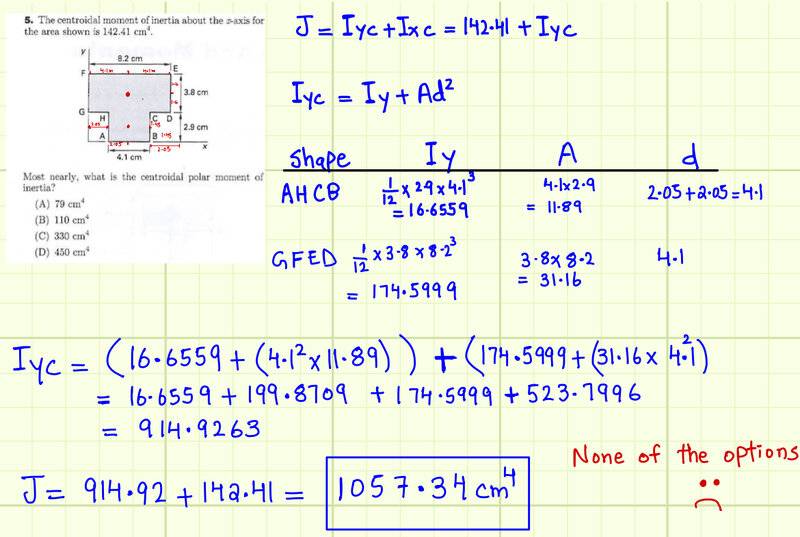 5. The centroidal moment of inertia about the x-axis for
the area shown is 142.41 cm⁴.
y
8.2 cm
F
E
4.1cm
4.1cm
3.8 cm
G
H
C
D
2.9 cm
A
B
x
2.05
2.05
4.1 cm
Most nearly, what is the centroidal polar moment of
inertia?
(A) 79 cm⁴
(B) 110 cm⁴
(C) 330 cm⁴
(D) 450 cm⁴
J = Iyc + Ixc = 142.41 + Iyc
Iyc = Iy + Ad²
Shape Iy A d
AHCB 1/12 × 2.9 × 4.1³ 4.1×2.9 2.05+2.05=4.1
= 16.6559 = 11.89
GFED 1/12 × 3.8 × 8.2³ 3.8 × 8.2 4.1
= 174.5999 = 31.16
Iyc = (16.6559 + (4.1² × 11.89)) + (174.5999 + (31.16 × 4.1²)
= 16.6559 + 199.8709 + 174.5999 + 523.7996
= 914.9263
None of the options
J = 914.92 + 142.41 = 1057.34 cm⁴